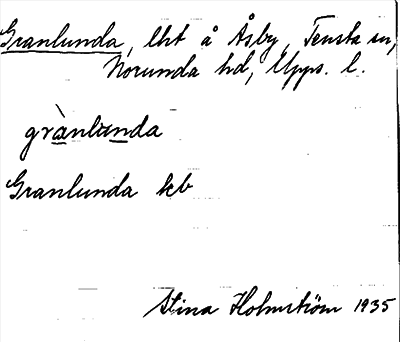 Granlunda, lht å Åsby, Tensta sn,
Norunda hd, Upps. l.
grànlunda
Granlunda kb
Stina Holmström 1935